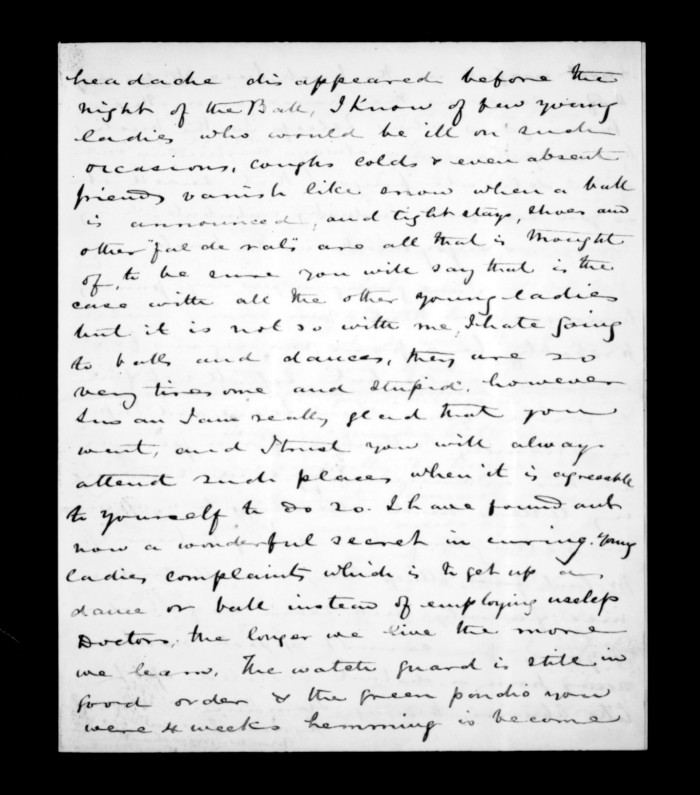 headache disappeared before the
night of the Ball, I know of few young
ladies who would be ill on such
occasions, coughs colds & even absent
friends vanish like snow when a ball
is announced, and tight stays, shoes and
other "fal de rals" are all that is thought
of, to be sure you will say that is the
case with all the other young ladies
but it is not so with me, I hate going
to balls and dances, they are so
very tiresome and stupid, however
Susan I am really glad that you
went, and I trust you will always
attend such places when it is agreeable
to yourself to do so. I have found out
now a wonderful secret in curing young
ladies complaints which is to get up a
dance or ball instead of employing useless
Doctors, the longer we live the more
we learn. The watch guard is still in
good order & the green you
were 4 weeks hemming is become